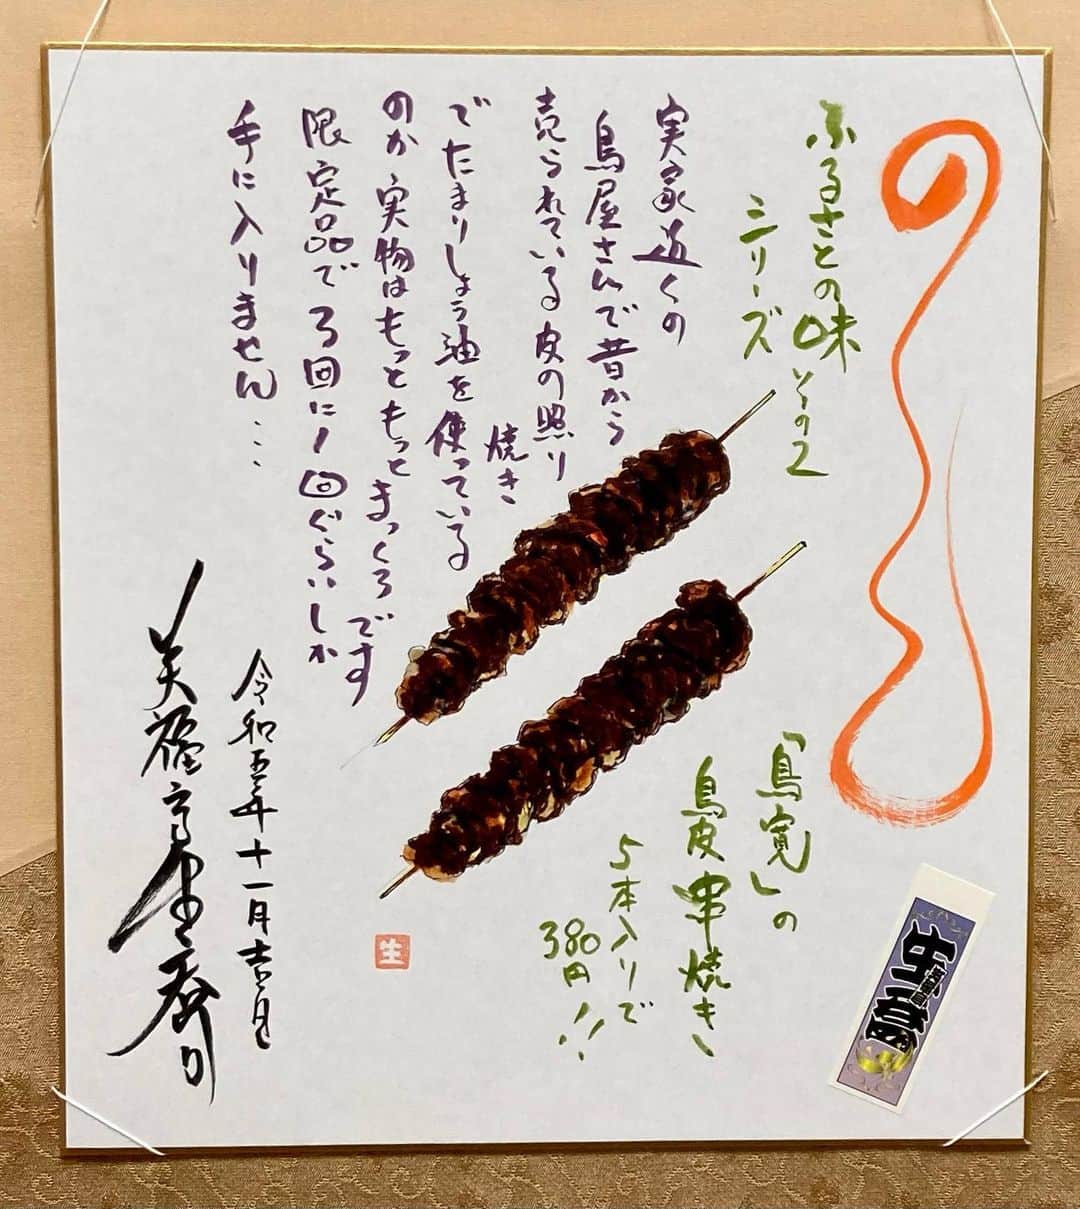 の
ふるさとの味 その2
シリーズ
実家近くの
鳥屋さんで昔から
売られている皮の照り
焼き
でたまりしょう油を使っている
のか実物はもっともっとまっくろです
限定品で3回に1回ぐらいしか
手に入りません…
「鳥寛」の
鳥皮串焼き
5本入りで
380円!!
令和五年十一月吉日
美濃家生吞
生
生吞